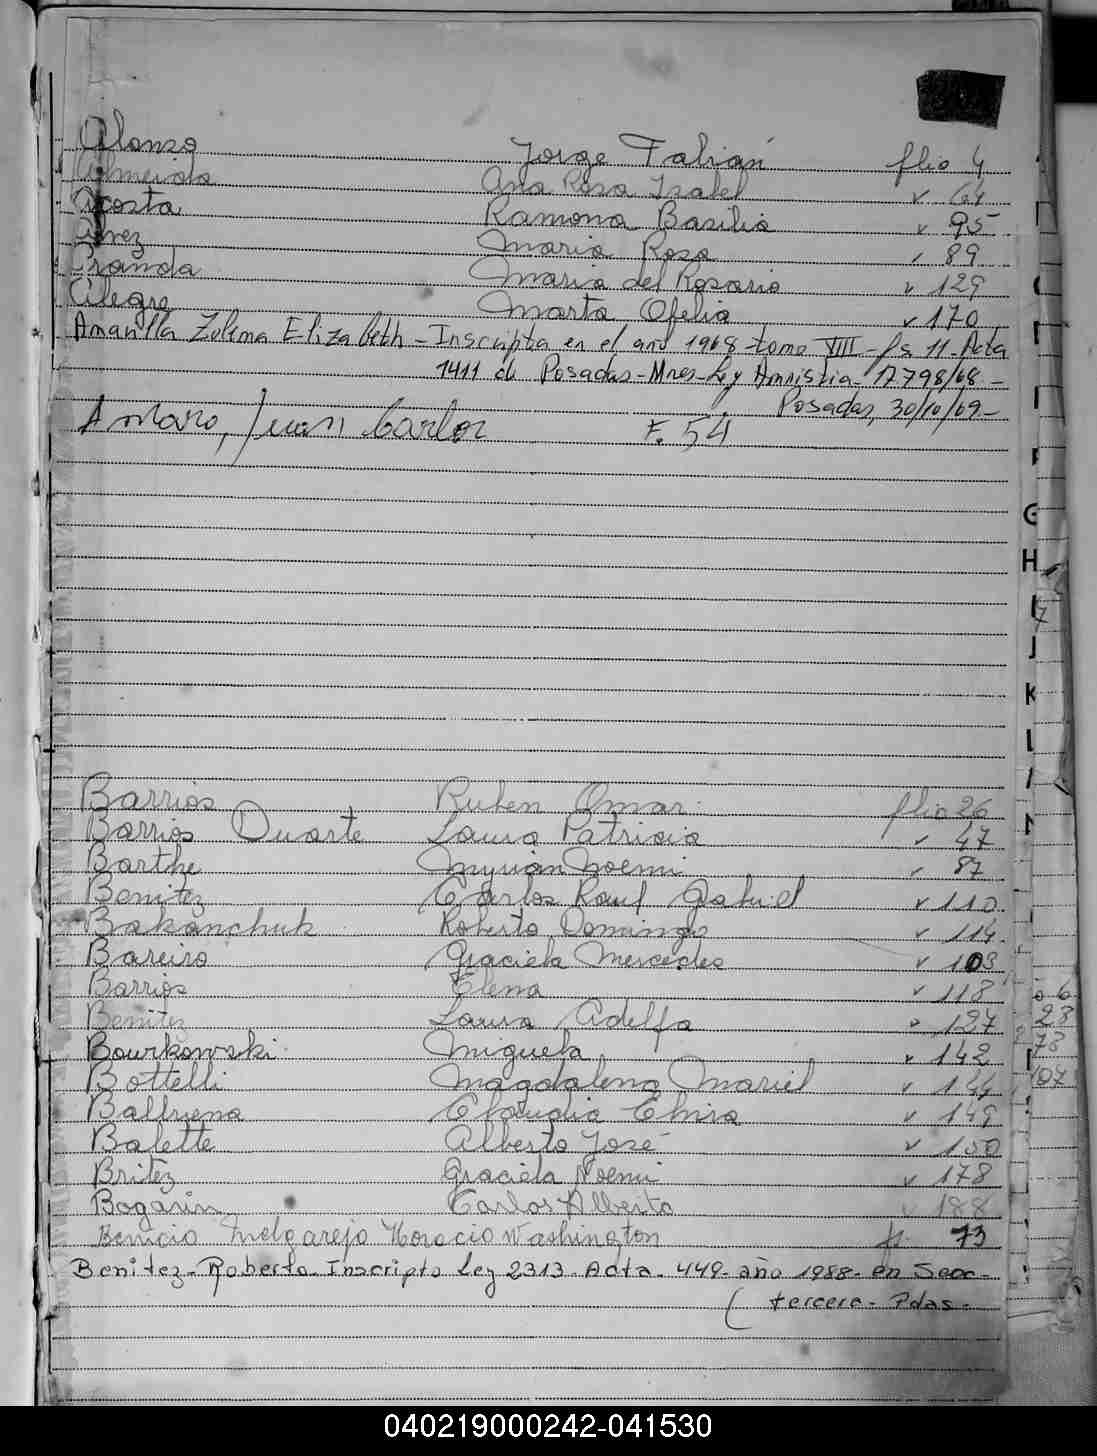 Alonso Jorge Fabián flio 4
Almeida Ana Rosa Isabel " 64
Acosta Ramona Basilia " 95
María Rosa " 89
Aranda María del Rosario " 129
Alegre Marta Ofelia " 170
Amarilla Zulema Elizabeth - Inscripta en el año 1968 - tomo VIII - fs 11 - Acta
1411 de Posadas - Mnes - Ley Amnistia - 17798/68 -
Posadas, 30/10/69 -
Amaro, Juan Carlos F. 54
G
H
I
J
K
L
Barrios Ruben Omar flio 26
Barrios Duarte Laura Patricia " 47
Barthe Myrian Noemi " 87
Benitez Carlos Raul Gabriel " 110
Bakanchuk Roberto Domingo " 114
Bareiro Graciela Mercedes " 103
Barrios Elena " 118
Benitez Laura Adelfa " 127
Bourkowski Miguela " 142
Bottelli Magdalena Mariel " 144
Balbuena Claudia Elvira " 149
Balette Alberto José " 150
Britez Graciela Noemi " 178
Bogarin Carlos Alberto " 188
Benicio Melgarejo Horacio Washington fs. 73
Benitez - Roberto - Inscripto Ley 2313 - Acta - 449 - año 1988 - en Secc -
( tercera - Pdas -
040219000242-041530